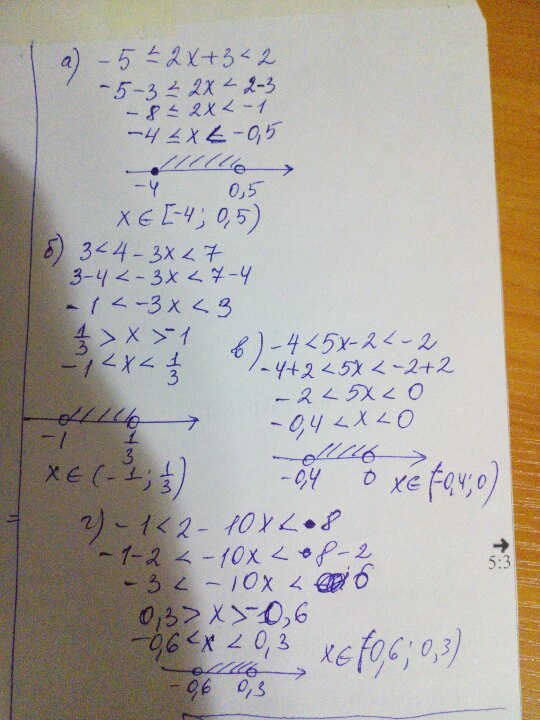 а) -5 ≤ 2x+3 < 2
-5-3 ≤ 2x < 2-3
-8 ≤ 2x < -1
-4 ≤ x < -0,5
-4 0,5
x ∈ [-4; 0,5)
б) 3 < 4 - 3x < 7
3-4 < -3x < 7-4
-1 < -3x < 3
1/3 > x > -1
-1 < x < 1/3
-1 1/3
x ∈ (-1; 1/3)
в) -4 < 5x-2 < -2
-4+2 < 5x < -2+2
-2 < 5x < 0
-0,4 < x < 0
-0,4 0
x ∈ (-0,4; 0)
г) -1 < 2 - 10x < 8
-1-2 < -10x < 8-2
-3 < -10x < 6
0,3 > x > -0,6
-0,6 < x < 0,3
-0,6 0,3
x ∈ (-0,6; 0,3)
→
5:3
=